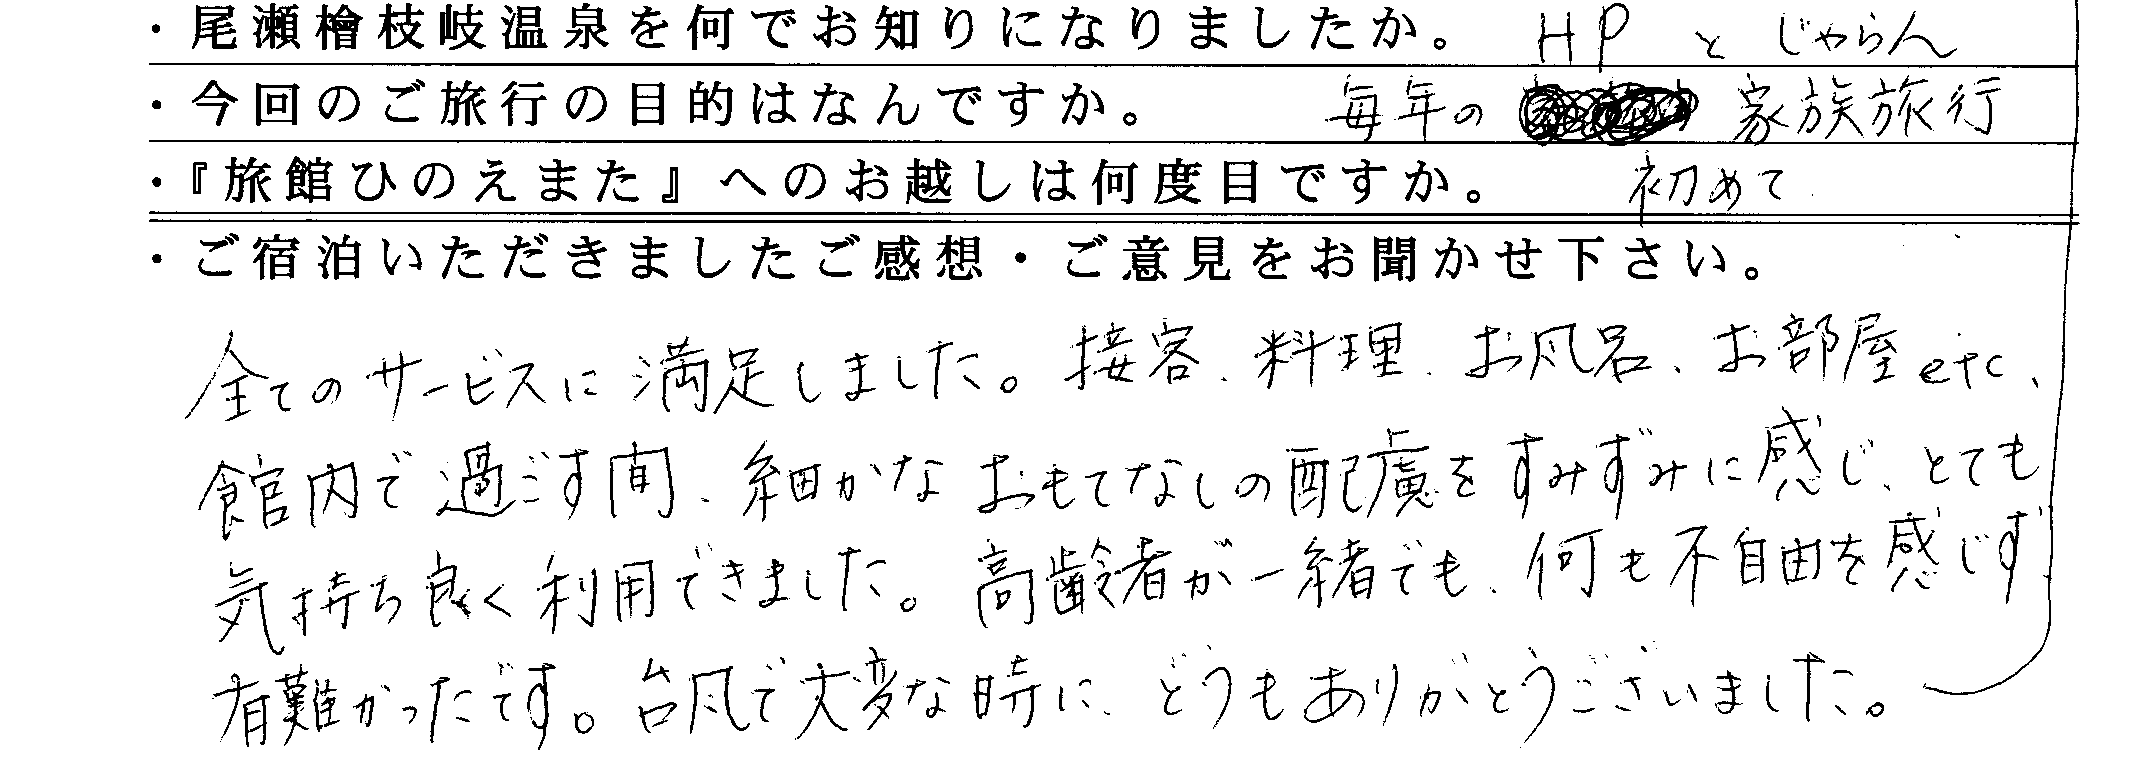 ・尾瀬檜枝岐温泉を何でお知りになりましたか。 HP と じゃらん
・今回のご旅行の目的はなんですか。 毎年の 家族旅行
・『旅館ひのえまた』へのお越しは何度目ですか。 初めて
・ご宿泊いただきましたご感想・ご意見をお聞かせ下さい。
全てのサービスに満足しました。接客、料理、お風呂、お部屋etc、
館内で過ごす間、細かなおもてなしの配慮をすみずみに感じ、とても
気持ち良く利用できました。高齢者が一緒でも、何も不自由を感じず
有難かったです。台風で大変な時に、どうもありがとうございました。